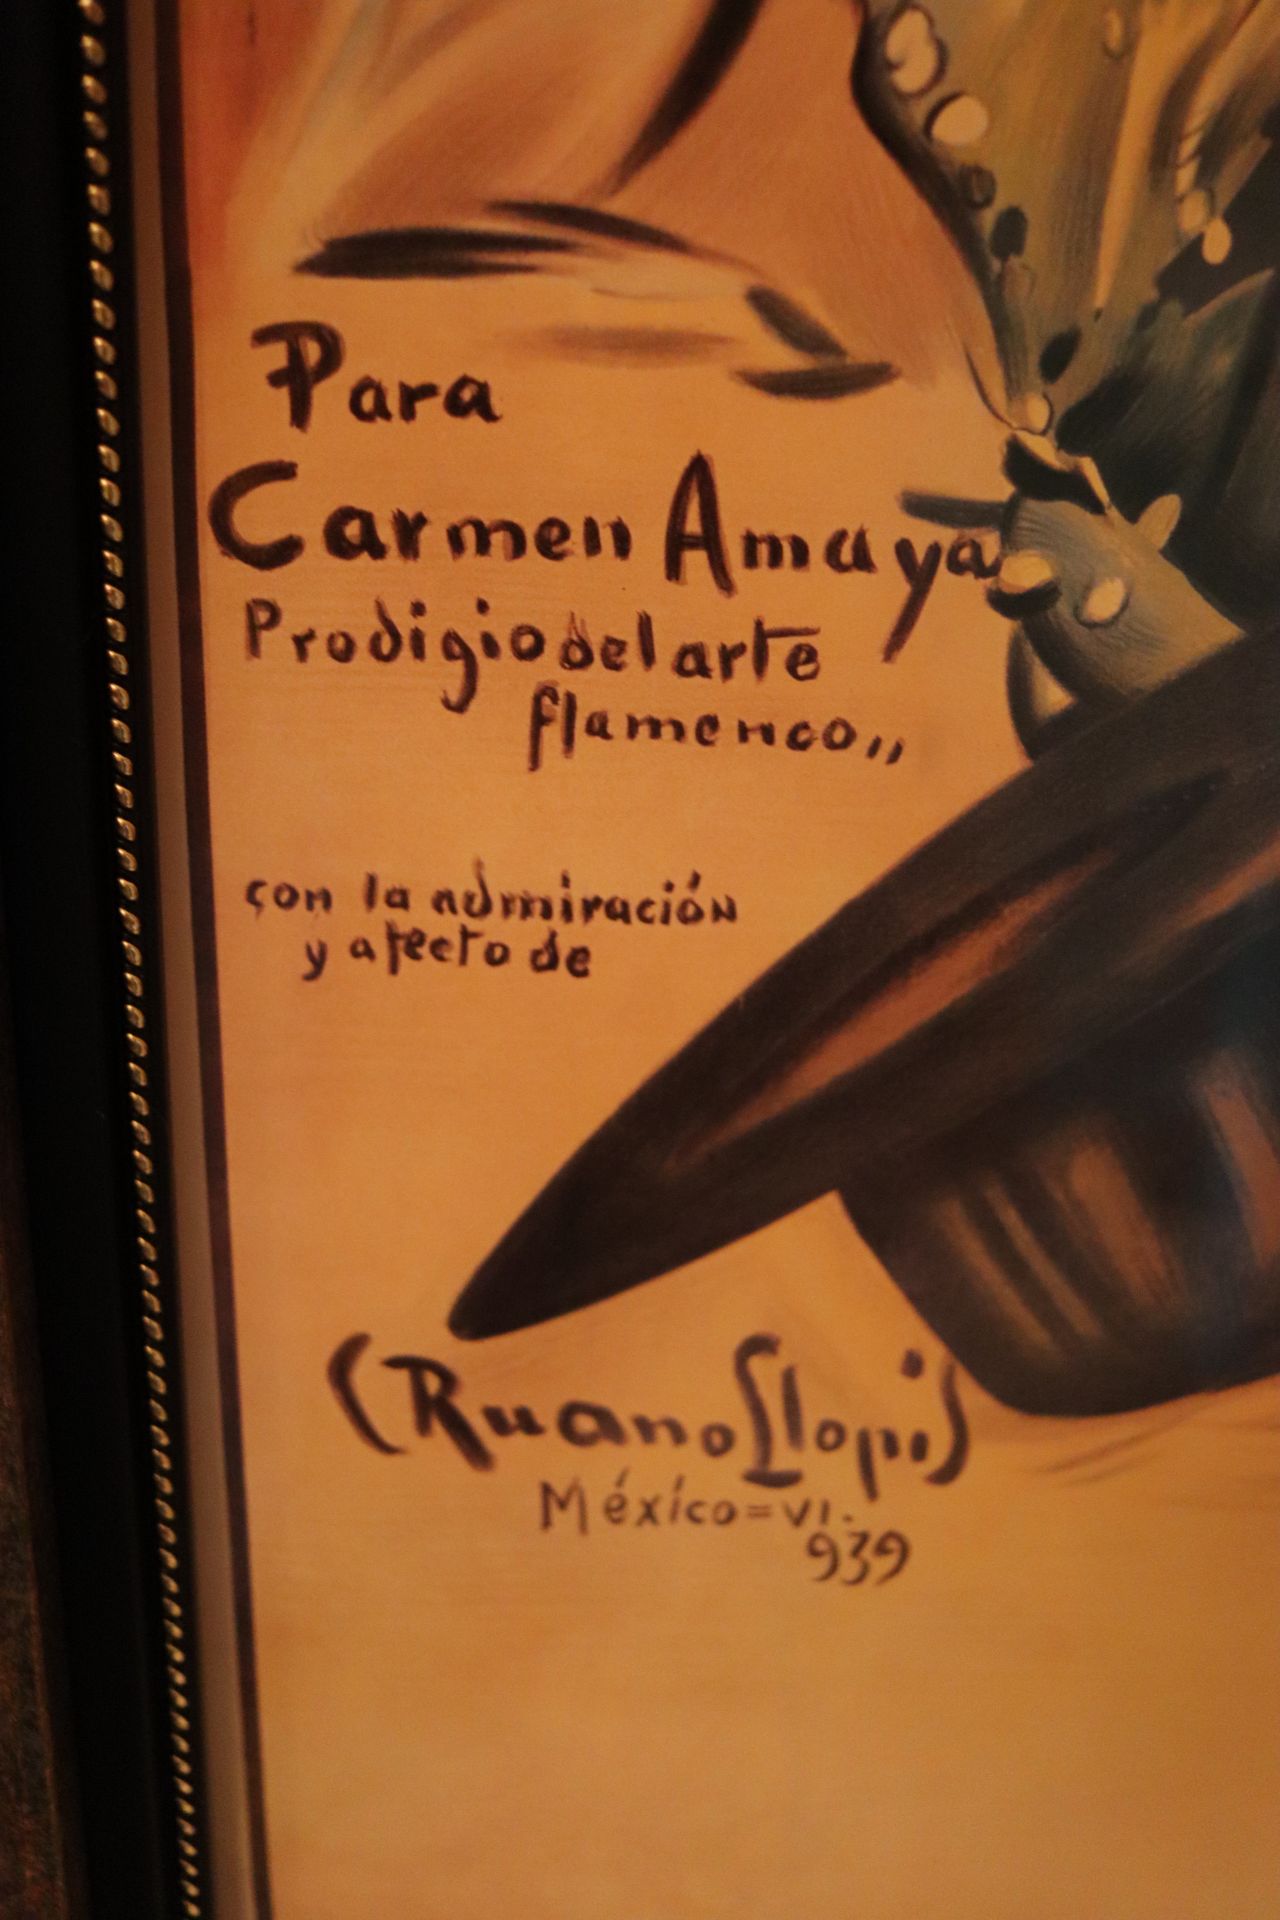 Para
Carmen Amaya
Prodigio del arte
flamenco,,
con la admiración
y afecto de
(Ruano Llopis
México=VI.
939